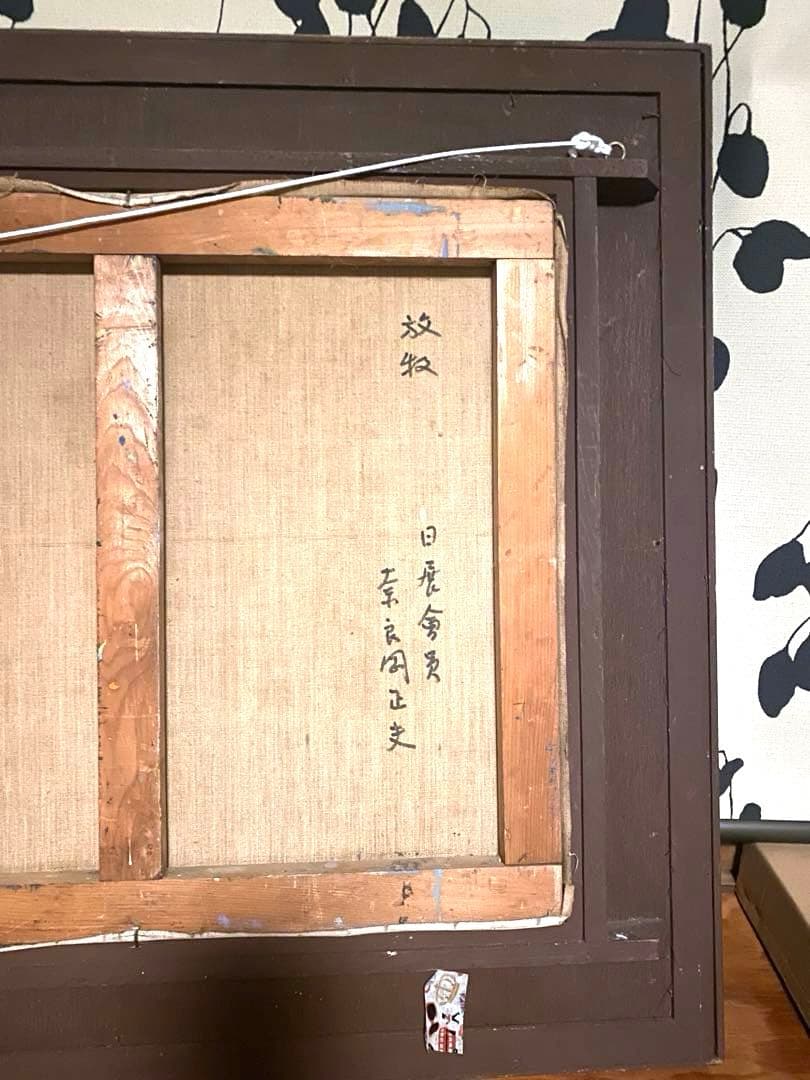 放牧
日展會員
奈良岡正夫